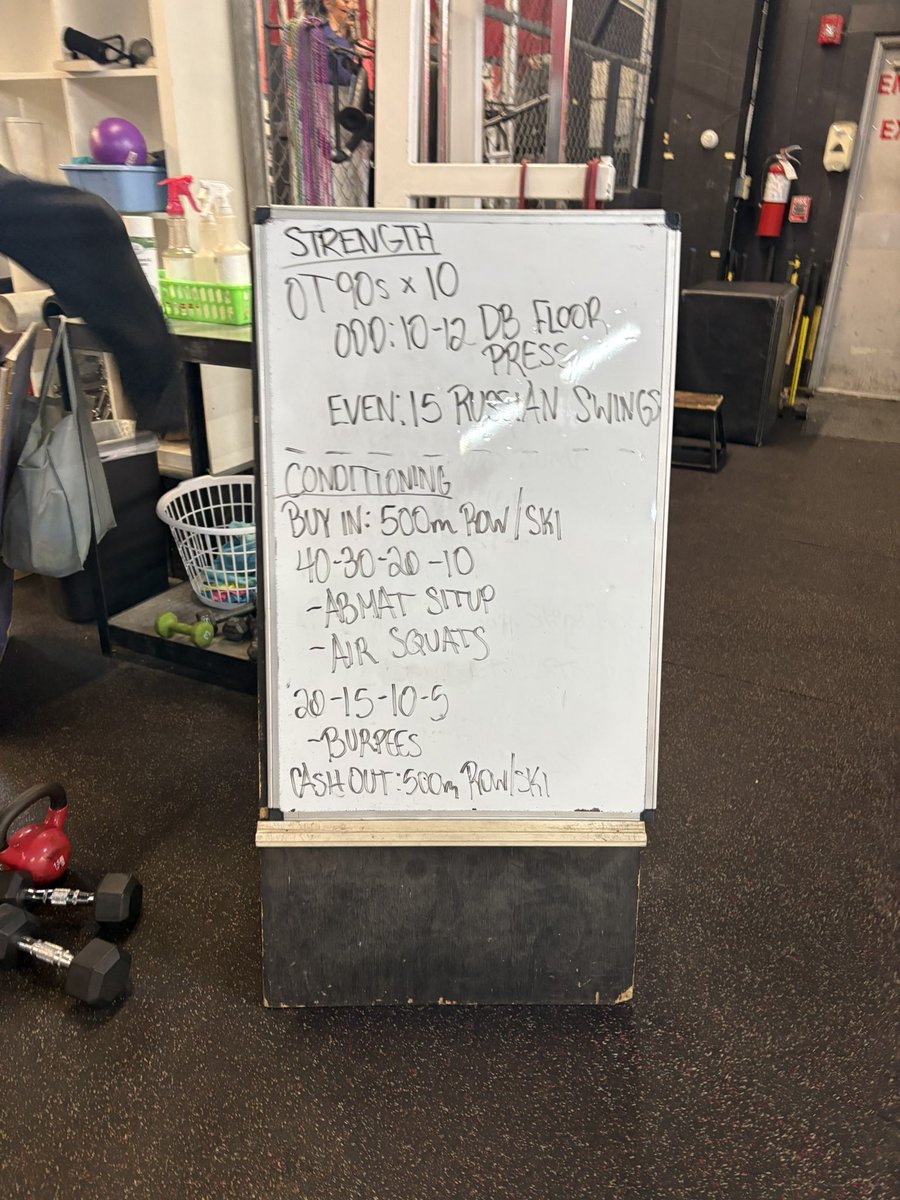 STRENGTH
OT90s x 10
ODD: 10-12 DB FLOOR
PRESS
EVEN: 15 RUSSIAN SWINGS
CONDITIONING
BUY IN: 500m ROW/SKI
40-30-20-10
-ABMAT SITUP
-AIR SQUATS
20-15-10-5
-BURPEES
CASH OUT: 500m ROW/SKI